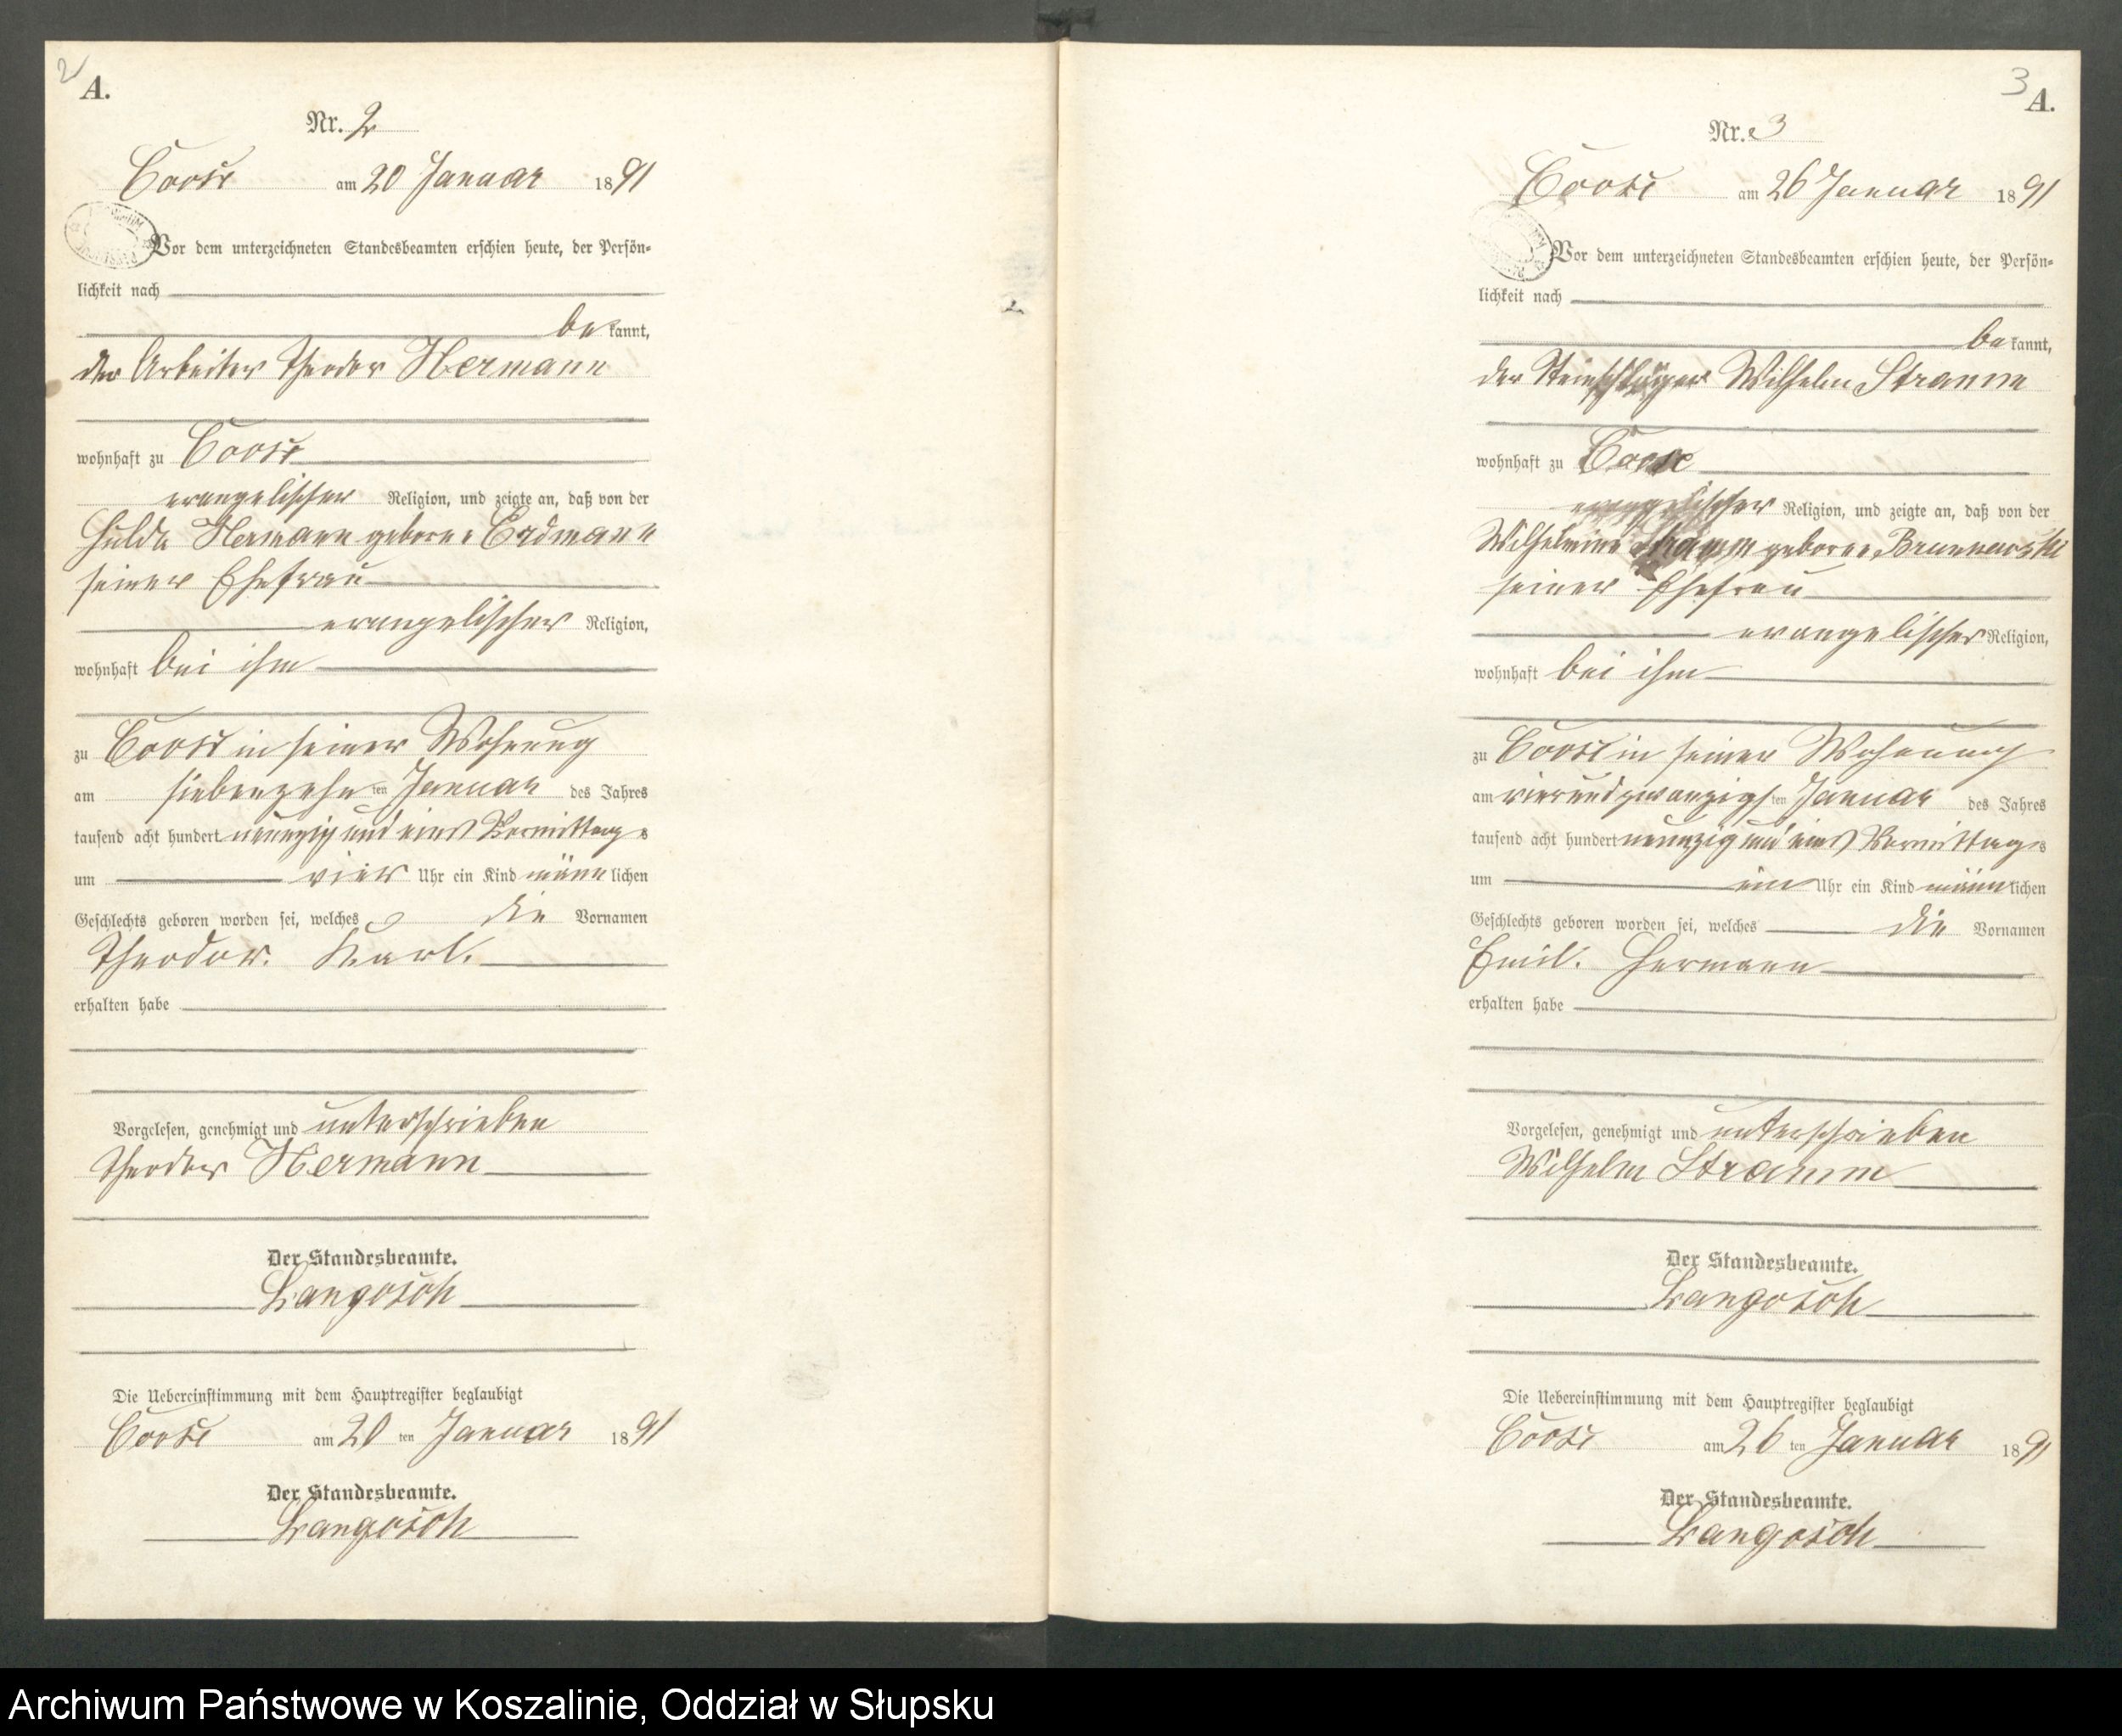 2
A.
Nr. 2
Coose am 20 Januar 1891
Vor dem unterzeichneten Standesbeamten erschien heute, der Persön-
lichkeit nach
bekannt,
der Arbeiter Theodor Hermann
wohnhaft zu Coose
evangelischer Religion, und zeigte an, daß von der
Hulda Hermann geborne Erdmann
seiner Ehefrau
evangelischer Religion,
wohnhaft bei ihm
zu Coose in seiner Wohnung
am siebenzehnten Januar des Jahres
tausend acht hundert neunzig und eins Vormittags
um vier Uhr ein Kind männlichen
Geschlechts geboren worden sei, welches die Vornamen
Theodor. Karl.
erhalten habe
Vorgelesen, genehmigt und unterschrieben
Theodor Hermann
Der Standesbeamte.
Langosch
Die Uebereinstimmung mit dem Hauptregister beglaubigt
Coose am 20 ten Januar 1891
Der Standesbeamte.
Langosch
3
A.
Nr. 3
Coose am 26 Januar 1891
Vor dem unterzeichneten Standesbeamten erschien heute, der Persön-
lichkeit nach
bekannt,
der Steinschläger Wilhelm Stramm
wohnhaft zu Coose
evangelischer Religion, und zeigte an, daß von der
Wilhelmine Stramm geborne
seiner Ehefrau
evangelischer Religion,
wohnhaft bei ihm
zu Coose in seiner Wohnung
am vierundzwanzigsten Januar des Jahres
tausend acht hundert neunzig und eins Vormittags
um ein Uhr ein Kind männlichen
Geschlechts geboren worden sei, welches die Vornamen
Emil. Hermann
erhalten habe
Vorgelesen, genehmigt und unterschrieben
Wilhelm Stramm
Der Standesbeamte.
Langosch
Die Uebereinstimmung mit dem Hauptregister beglaubigt
Coose am 26 ten Januar 1891
Der Standesbeamte.
Langosch
Archiwum Państwowe w Koszalinie, Oddział w Słupsku